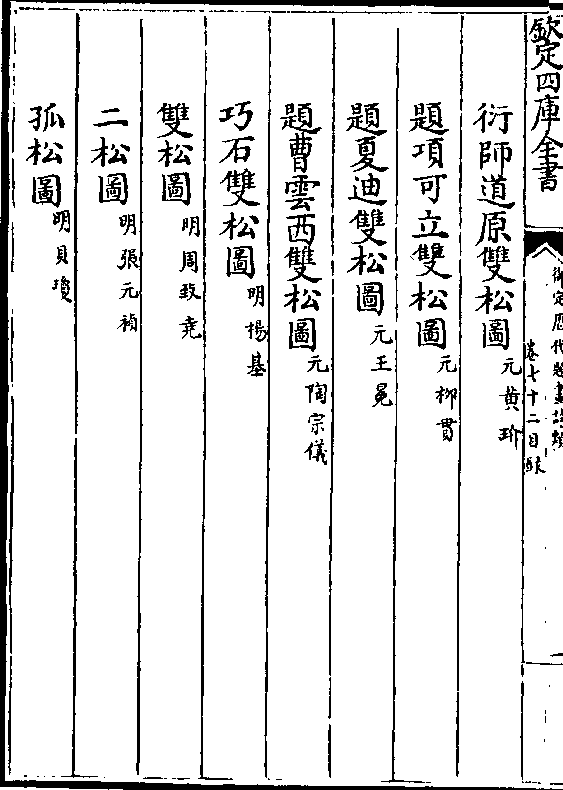 欽定四庫全書
御定歷代題畫詩類
卷七十二目錄
衍師道原雙松圖元黄玠
題項可立雙松圖元柳貫
題夏迪雙松圖元王冕
題曹雲西雙松圖元陶宗儀
巧石雙松圖明楊基
雙松圖明周致堯
二松圖明張元禎
孤松圖明貝瓊